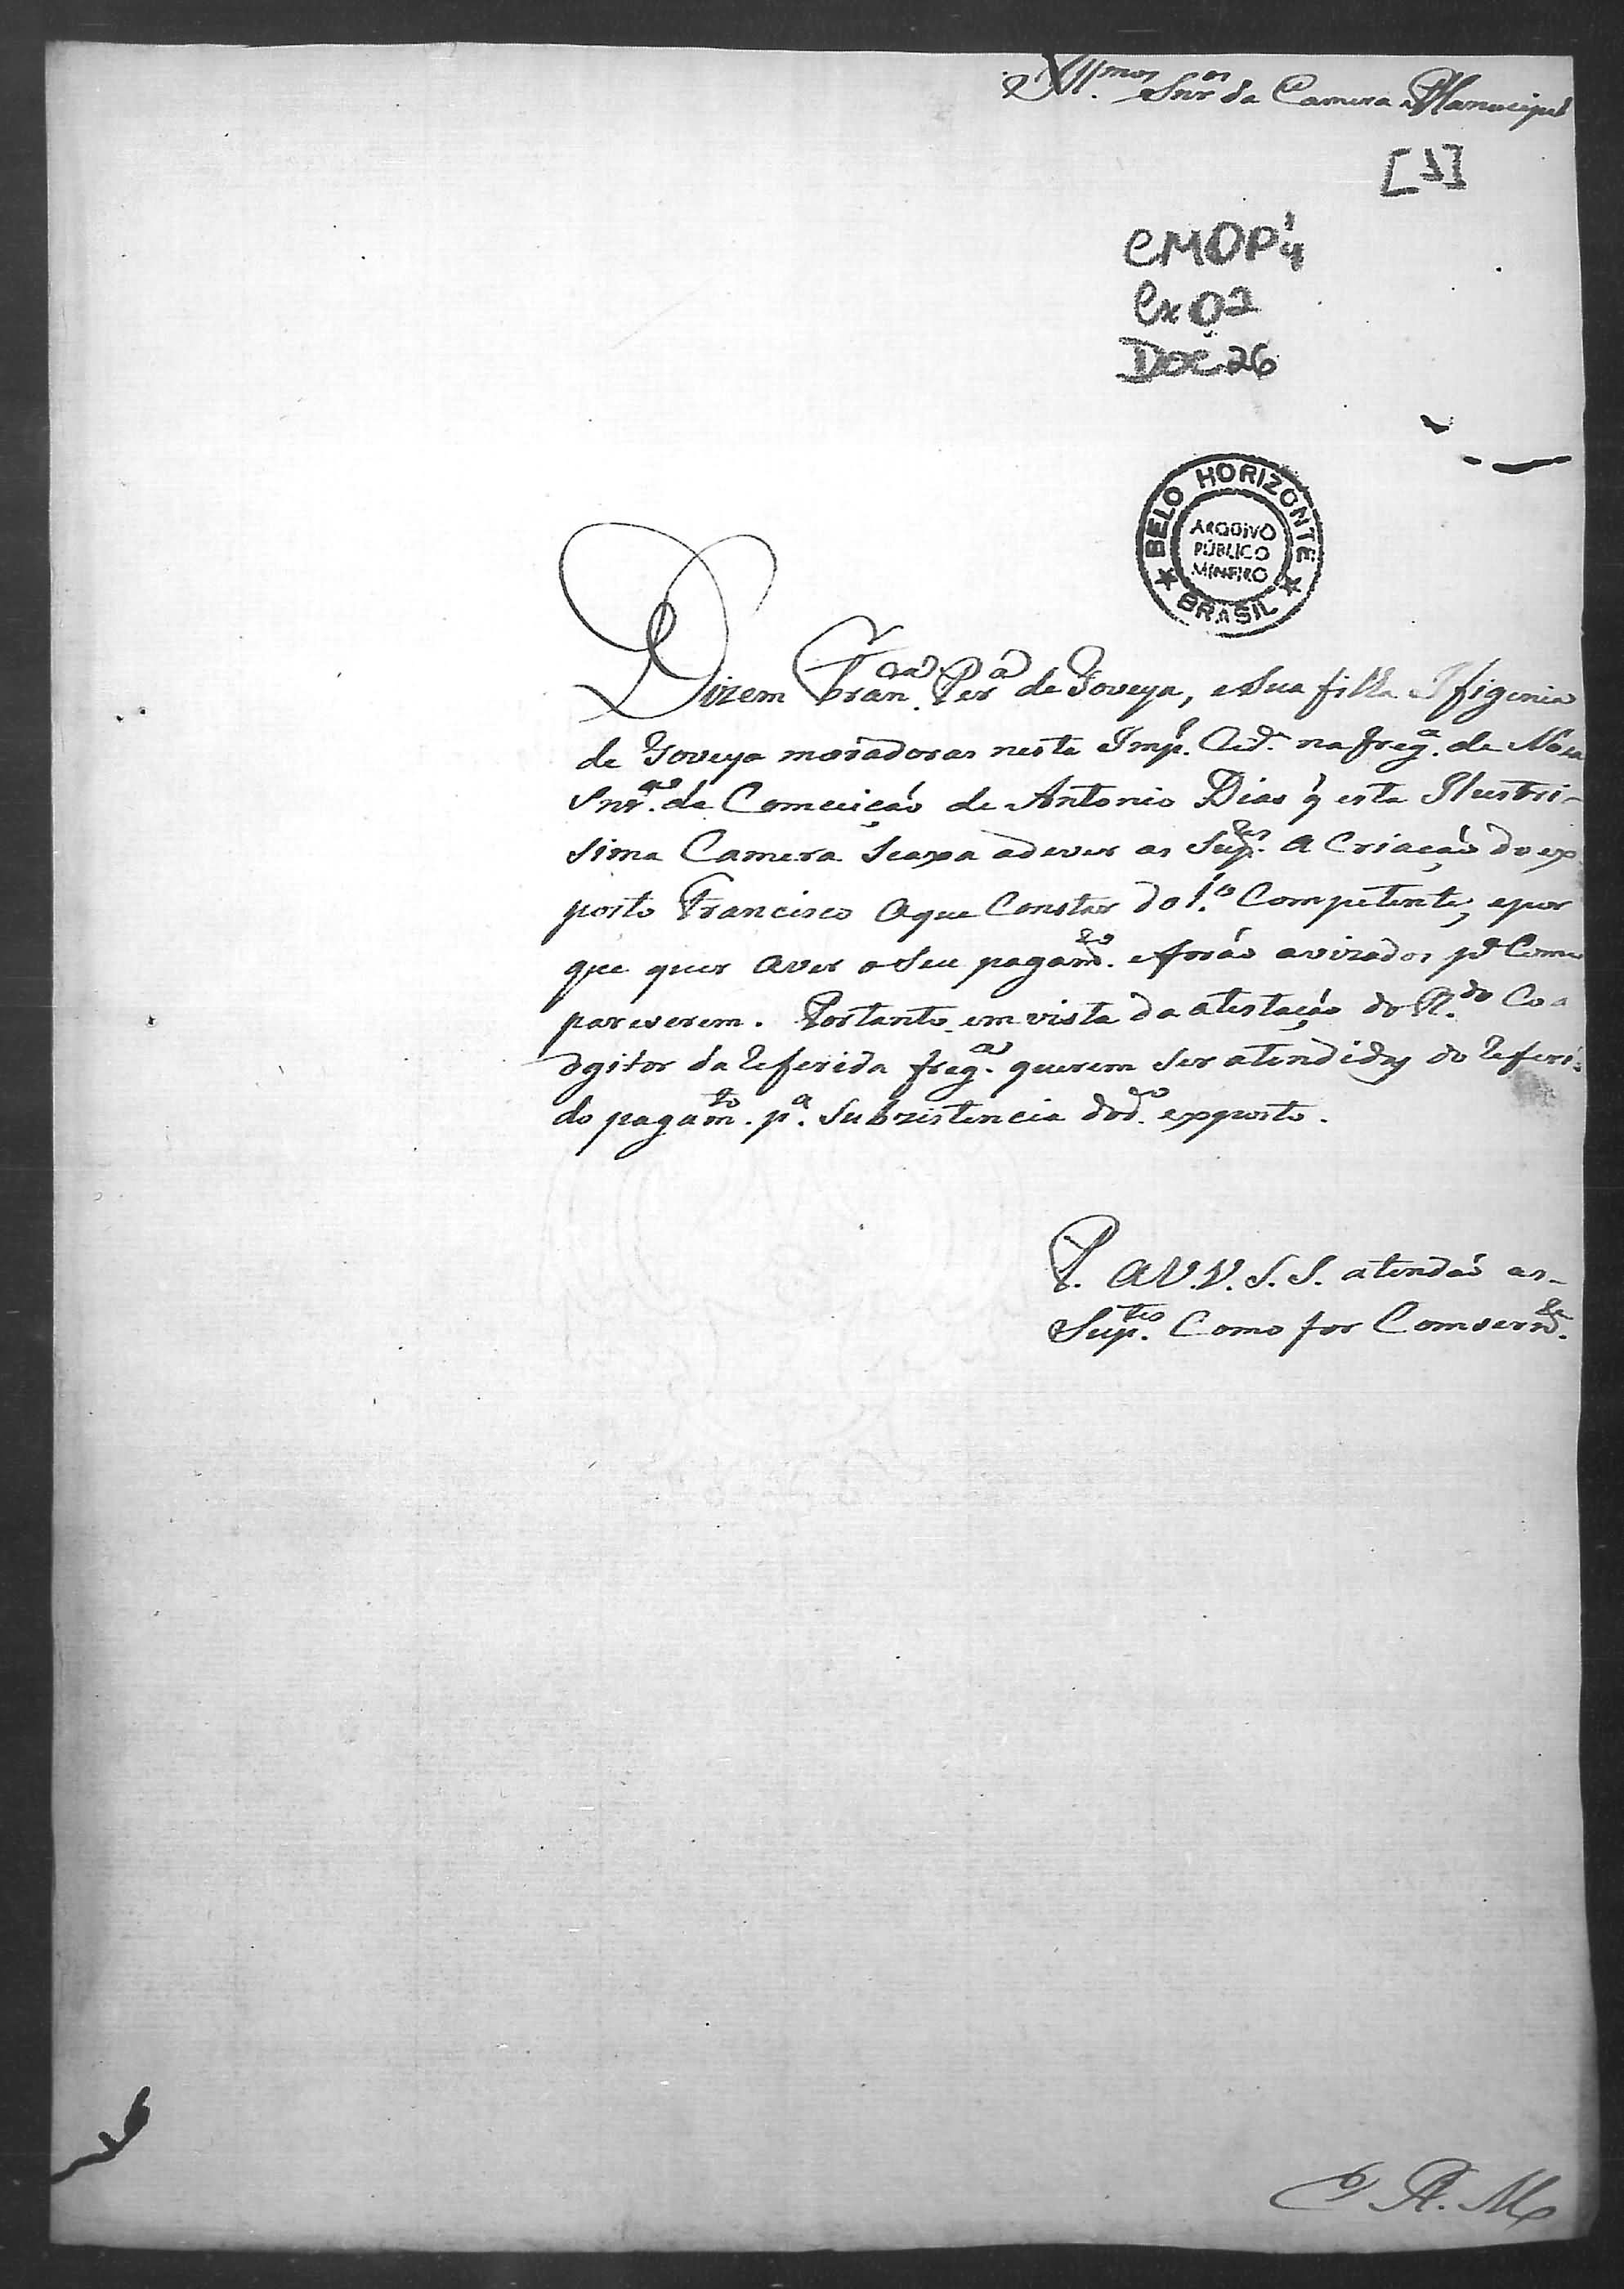 Ill.mos Snr.es da Camera Manucipal
[1]
CMOP 1/4
Cx 02
DOC. 26
BELO HORIZONTE
ARQUIVO
PÚBLICO
MINEIRO
BRASIL
Dizem Fran.ca Per.a de Goveya, e Sua filha Ifigenia
de Goveya moradoras nesta Imp.l Cid.e na freg.a de Nosa
Snr.a da Comceição de Antonio Dias q̃ esta Ilustri-
sima Camera Seaxa adever as Sup.es a Criação do ex
posto Francisco Oque Constar do L.o Competente, epor
que quer aver o Seu pagam.to e forão avizados p.a Com
pareserem. Portanto em vista da atestação do R.do Coa
dgitor da Referida freg.a querem Ser atendidas do Referi-
do pagam.to p.a Subzistencia dod.o exposto.
P. a V.V. S. S. atendão as
Sup.tes Como for Comven.te
E R. M.